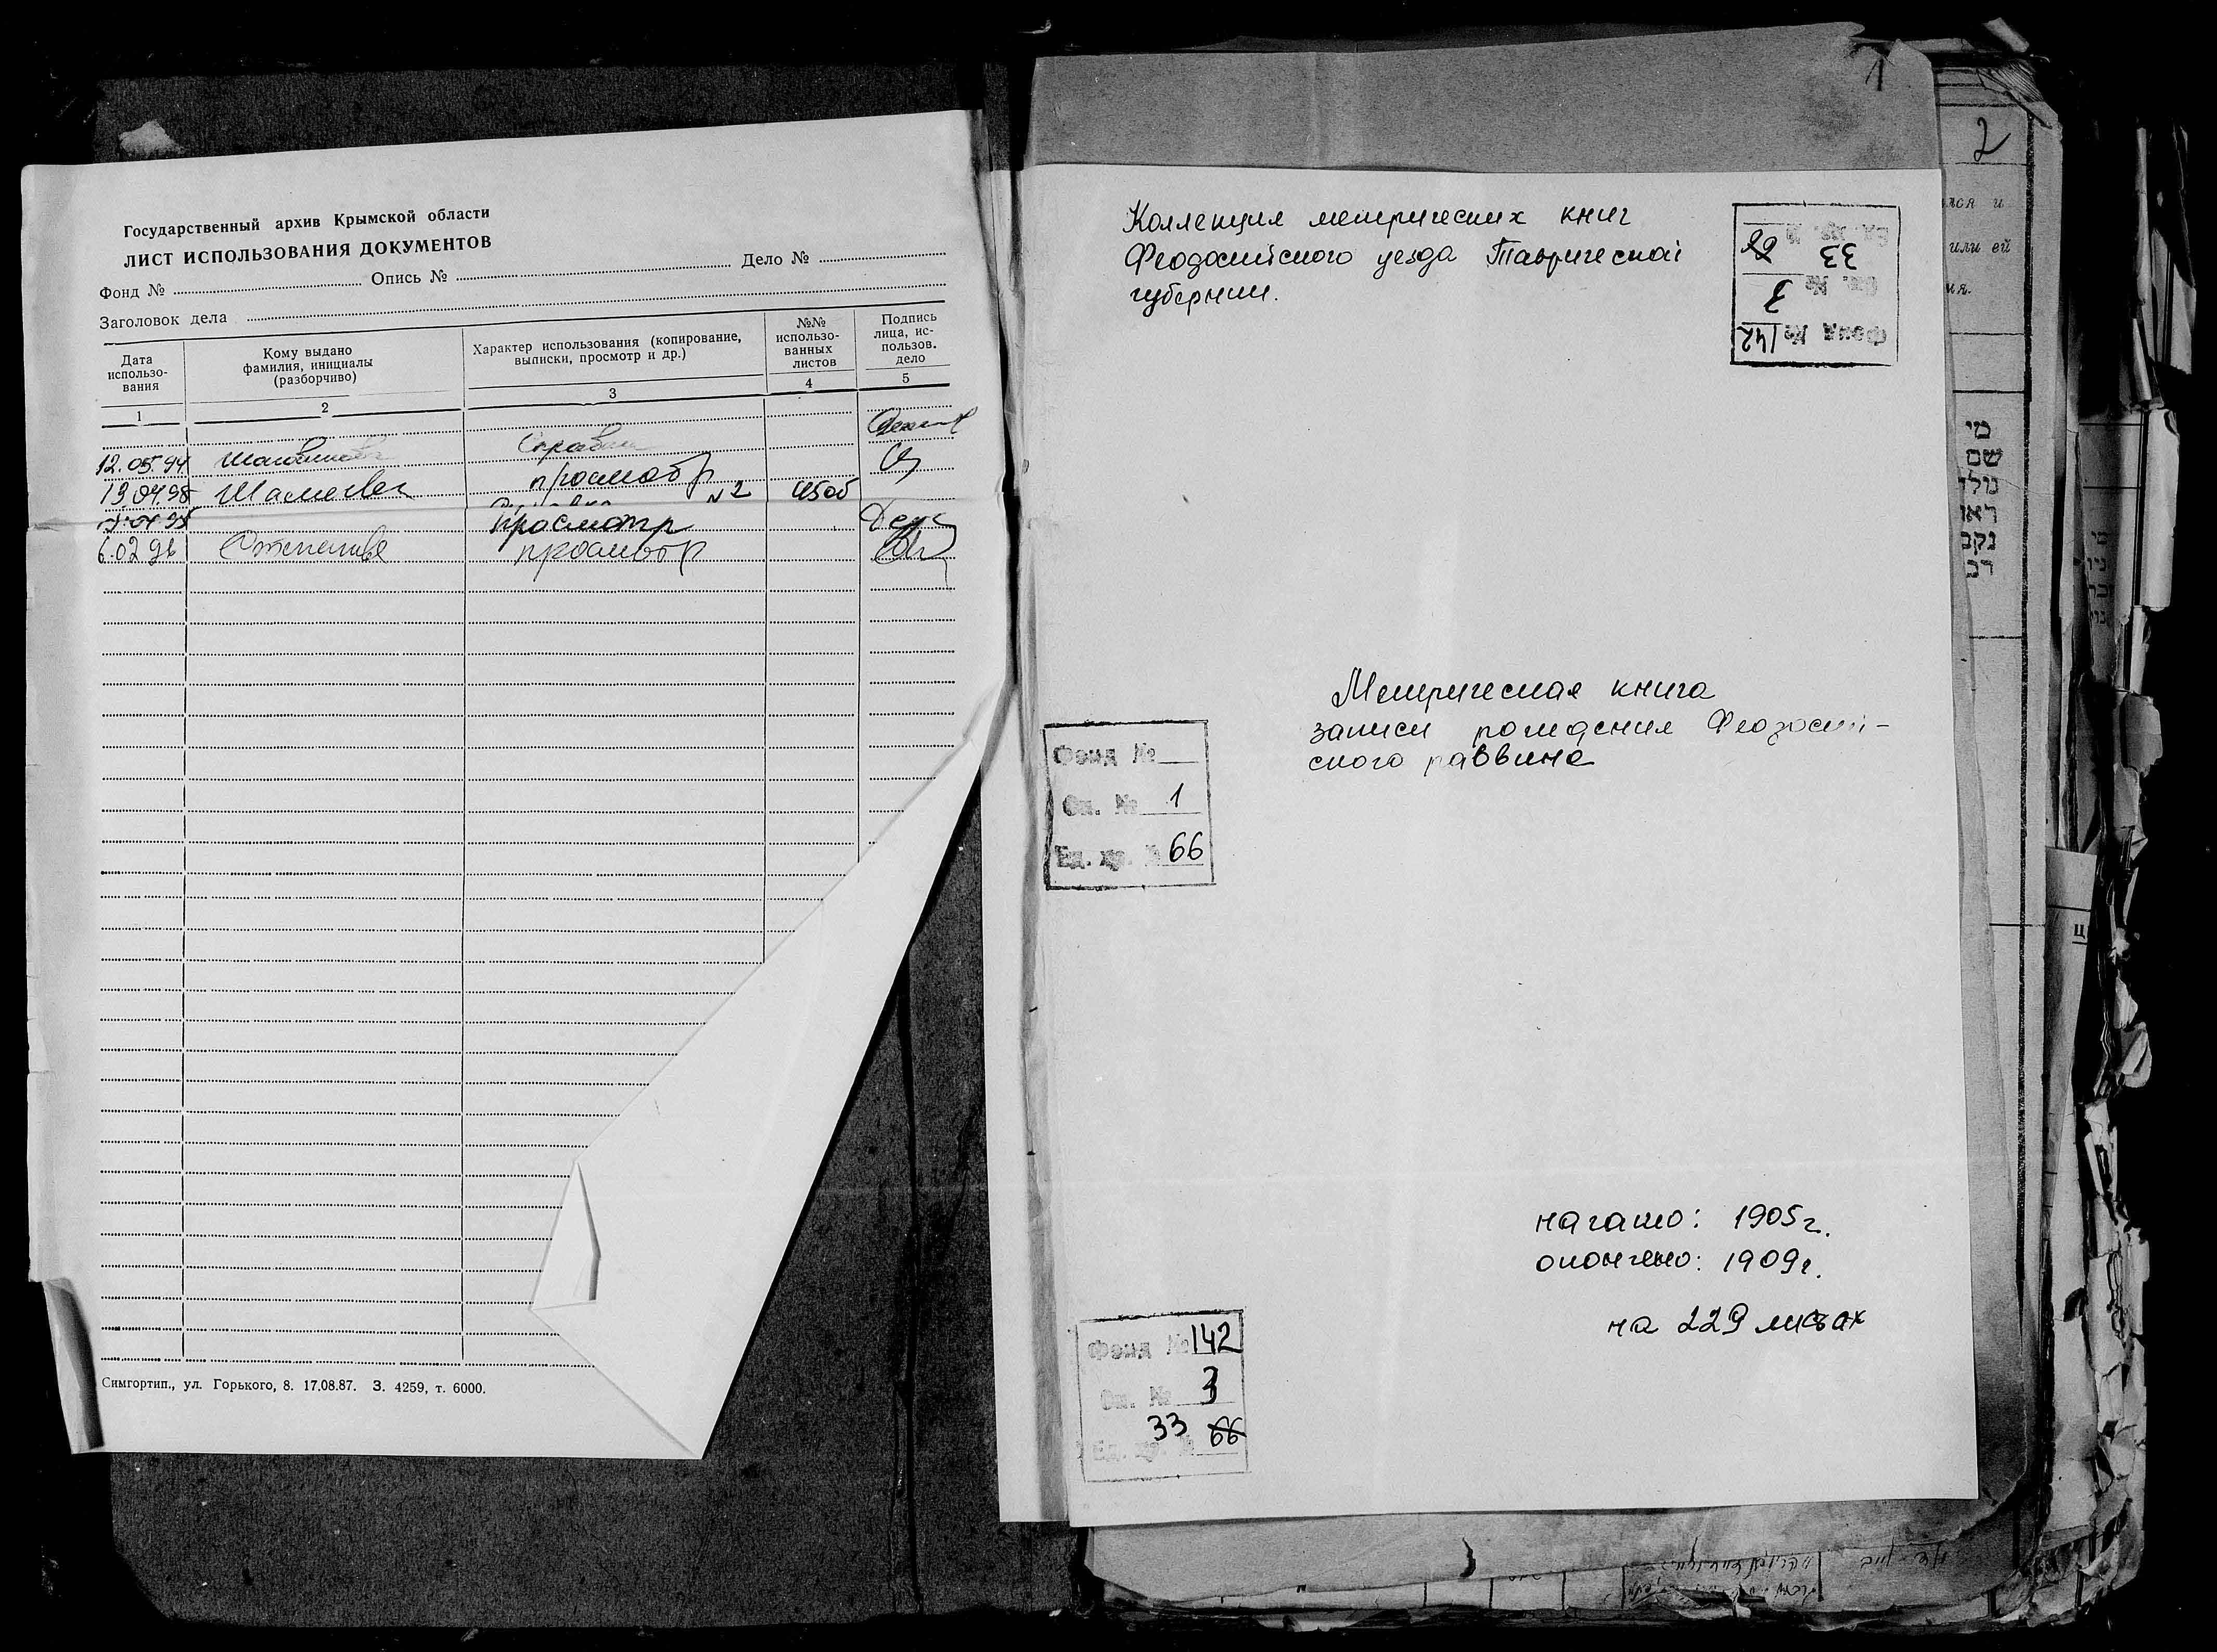 Государственный архив Крымской области
ЛИСТ ИСПОЛЬЗОВАНИЯ ДОКУМЕНТОВ
Фонд № Опись № Дело №
Заголовок дела
Дата использо-
вания
Кому выдано
фамилия, инициалы
(разборчиво)
Характер использования (копирование,
выписки, просмотр и др.)
№№
использо-
ванных
листов
Подпись
лица, ис-
пользов.
дело
1 2 3 4 5
12.05.94
просмотр
№2 45об
просмотр
6.02.96 просмотр
Симгортип., ул. Горького, 8. 17.08.87. З. 4259, т. 6000.
1
2
Коллекция метрических книг
Феодосийского уезда Таврической
губернии.
Фонд № 142
Оп. № 3
33
Метрическая книга
записи рождения Феодосий-
ского раввина
Фонд №
Оп. № 1
Ед. хр. № 66
начато: 1905г.
окончено: 1909г.
на 229 листах
Фонд № 142
Оп. № 3
33 66
Ед. хр. №
или ей
מי
שם